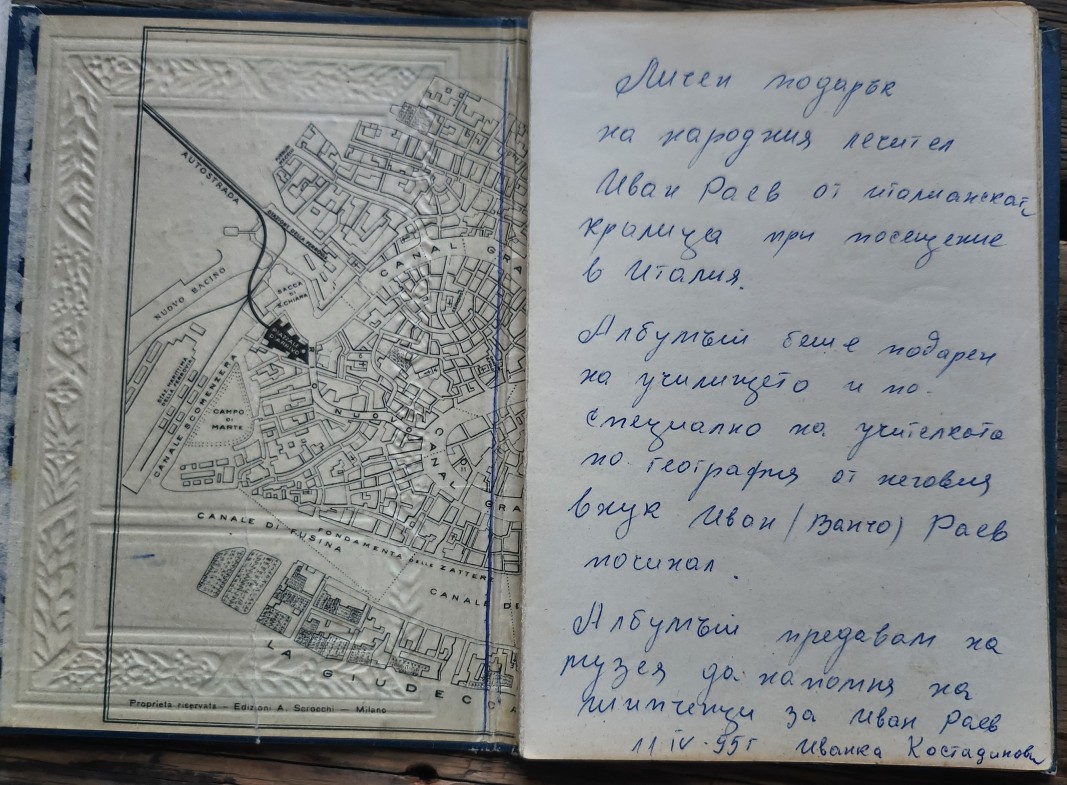 AUTOSTRADA
NUOVO BACINO
SACCA
DI
S. CHIARA
PIAZZALE
CANALE SCORENZERA
CAMPO
DI
MARTE
CANAL GRA
NUOVO
CANAL GRA
CANALE DI FUSINA
FONDAMENTA DELLE ZATTERE
CANALE DE
LA GIUDECCA
Proprietà riservata - Edizioni A. Scrocchi - Milano
Личен подарък
на народния лечител
Иван Раев от италианската
кралица при посещение
в Италия.
Албумът беше подарен
на училището и по-
специално на учителката
по география от неговия
внук Иван (Ванчо) Раев
починал.
Албумът предавам на
музея да напомня на
 за Иван Раев
11 IV - 95 г Иванка Костадинова